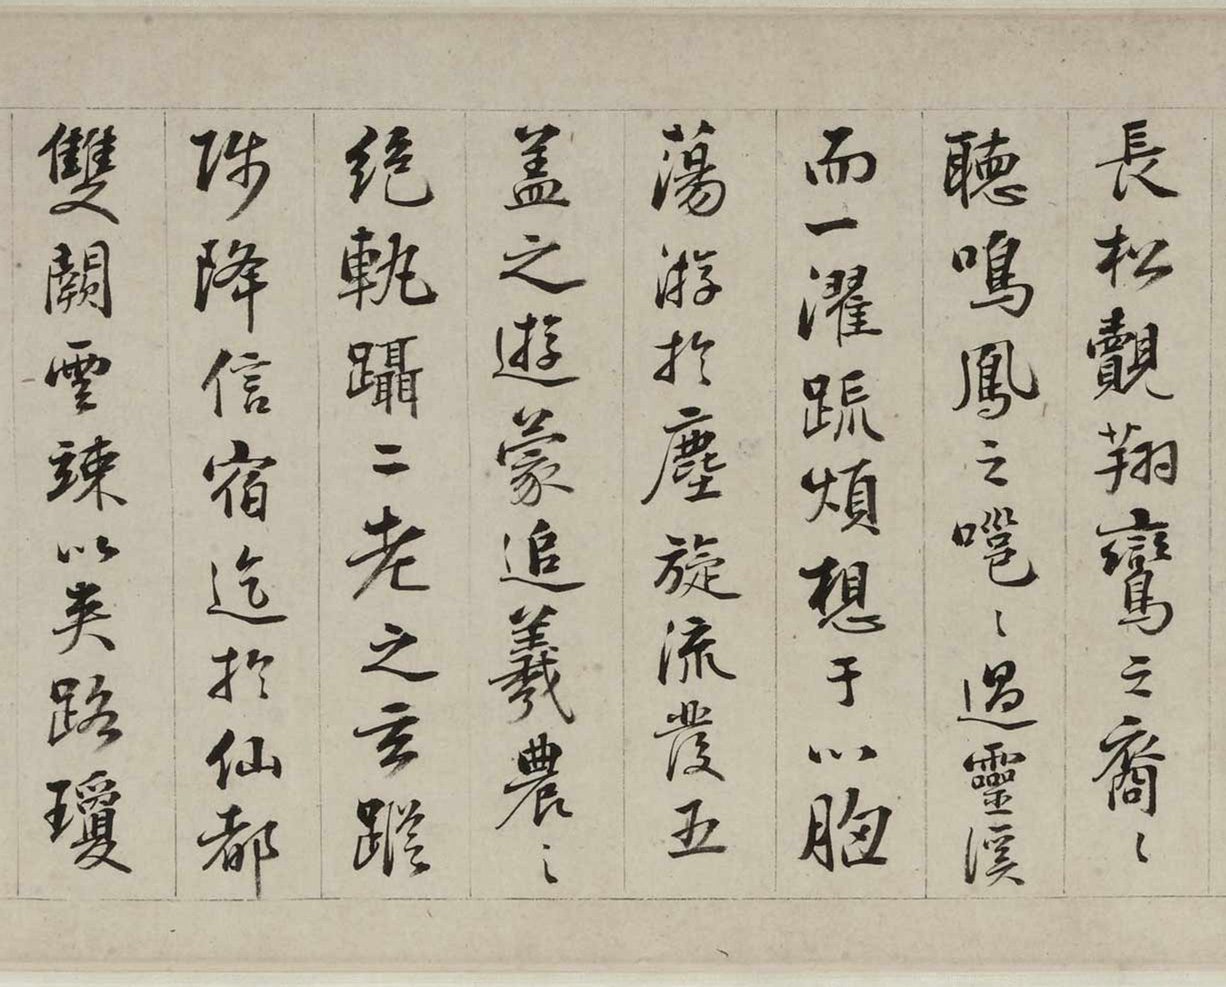 長松覿翔鸞之裔〻
聽鳴鳳之嗈〻過靈溪
而一濯疏煩想于心胸
蕩游於塵旋流發五
盖之遊蒙追羲農〻
絕軌躡二老之玄蹤
陟降信宿迄於仙都
雙闕雲竦以夾路瓊